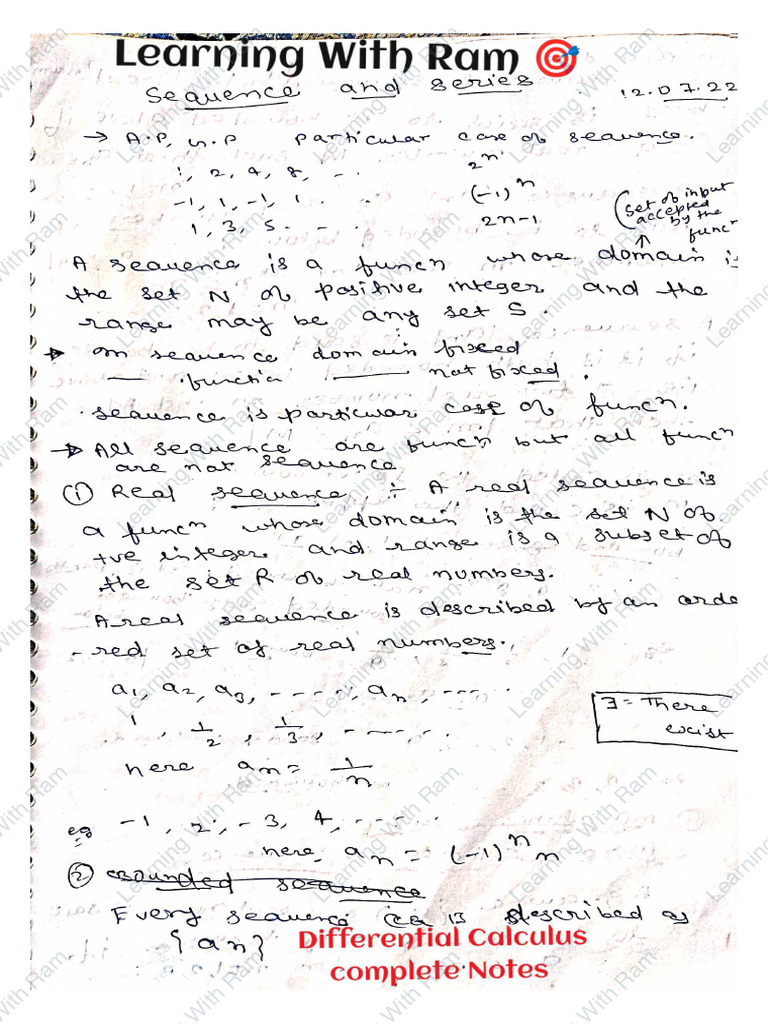 Learning With Ram
Sequence and series 12.07.22
→ A.P, G.P particular case of sequence.
1, 2, 4, 8, -.. 2^n
-1, 1, -1, 1 . . (-1)^n
1, 3, 5 - - . 2n-1
(set of input accepted by the funcn
A sequence is a funcn whose domain is
the set N of positive integer and the
range may be any set S.
→ In sequence domain fixed
— functin — not fixed.
sequence is particular case of funcn.
→ All sequence are funcn but all funcn
are not sequence
① Real sequence :- A real sequence is
a funcn whose domain is the set N of
+ve integer and range is a subset of
the set R of real numbers.
A real sequence is described by an orde
-red set of real numbers.
a1, a2, a3, -----, an, ---..
1, 1/2, 1/3, -----.
∃ = There exist
here an = 1/n
eg -1, 2, -3, 4, -----
here, an = (-1)^n n
② Bounded sequence
Every sequence is described by
{an}
Differential Calculus
complete Notes
Learning With Ram